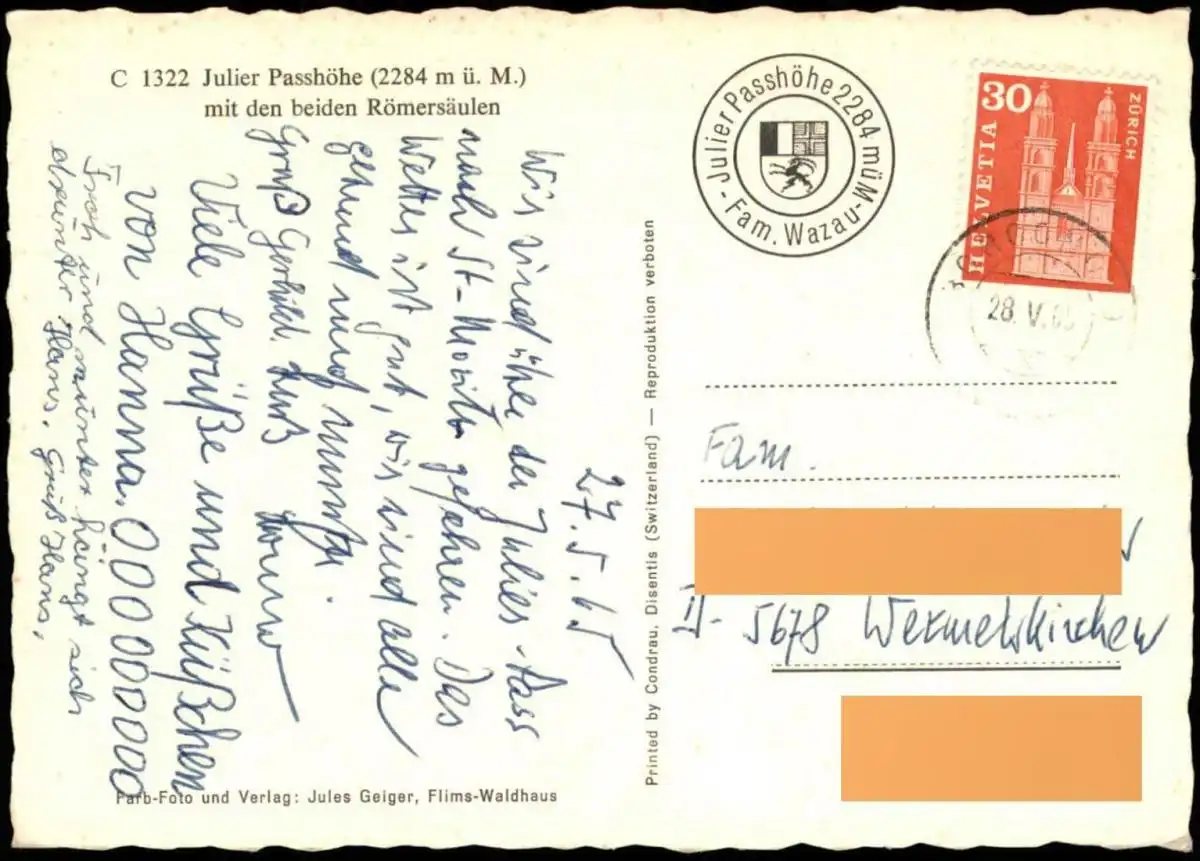 C 1322 Julier Passhöhe (2284 m ü. M.)
mit den beiden Römersäulen
27.5.65
Wir sind über den Julier-Pass
nach St-Moritz gefahren. Das
Wetter ist gut, wir sind alle
gesund und munter.
Gruß Gerhild. Gruß
Viele Grüße und Küßchen
von Hanna. 0000000000
Froh und munter hängt sich
drunter Hans. Gruß Hans.
Farb-Foto und Verlag: Jules Geiger, Flims-Waldhaus
Printed by Condrau, Disentis (Switzerland) — Reproduktion verboten
Julier Passhöhe 2284 müM
-Fam. Wazau-
30
HELVETIA
ZÜRICH
28. V. 65
Fam.
D- 5678 Wermelskirchen